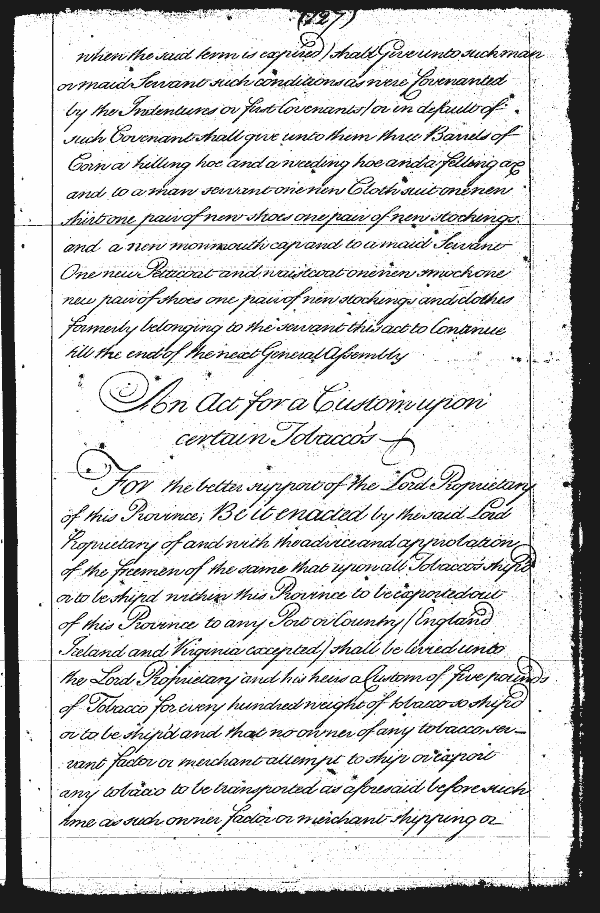 (127)
when the said term is expired) shall Give unto such man
or maid Servant such conditions as were Covenanted
by the Indentures or first Covenants/ or in default of
such Covenant shall give unto them three Barrels of
Corn a hilling hoe and a weeding hoe and a felling ax
and to a man servant one new Cloth suit one new
shirt one pair of new shoes one pair of new stockings
and a new monmouth cap and to a maid Servant
One new Petticoat and waistcoat one new smock one
new pair of shoes one pair of new stockings and clothes
formerly belonging to the servant this act to Continue
till the end of the next General Assembly
An Act for a Custom upon
certain Tobacco's
For the better support of the Lord Proprietary
of this Province; Be it enacted by the said Lord
Proprietary of and with the advice and approbation
of the freemen of the same that upon all Tobacco's ship'd
or to be ship'd within this Province to be exported out
of this Province to any Port or Country (England
Ireland and Virginia excepted) shall be levied unto
the Lord Proprietary and his heirs a Custom of five pounds
of Tobacco for every hundred weight of tobacco so ship'd
or to be ship'd and that no owner of any tobacco ser-
vant factor or merchant attempt to ship or export
any tobacco to be transported as aforesaid before such
time as such owner factor or merchant shipping or